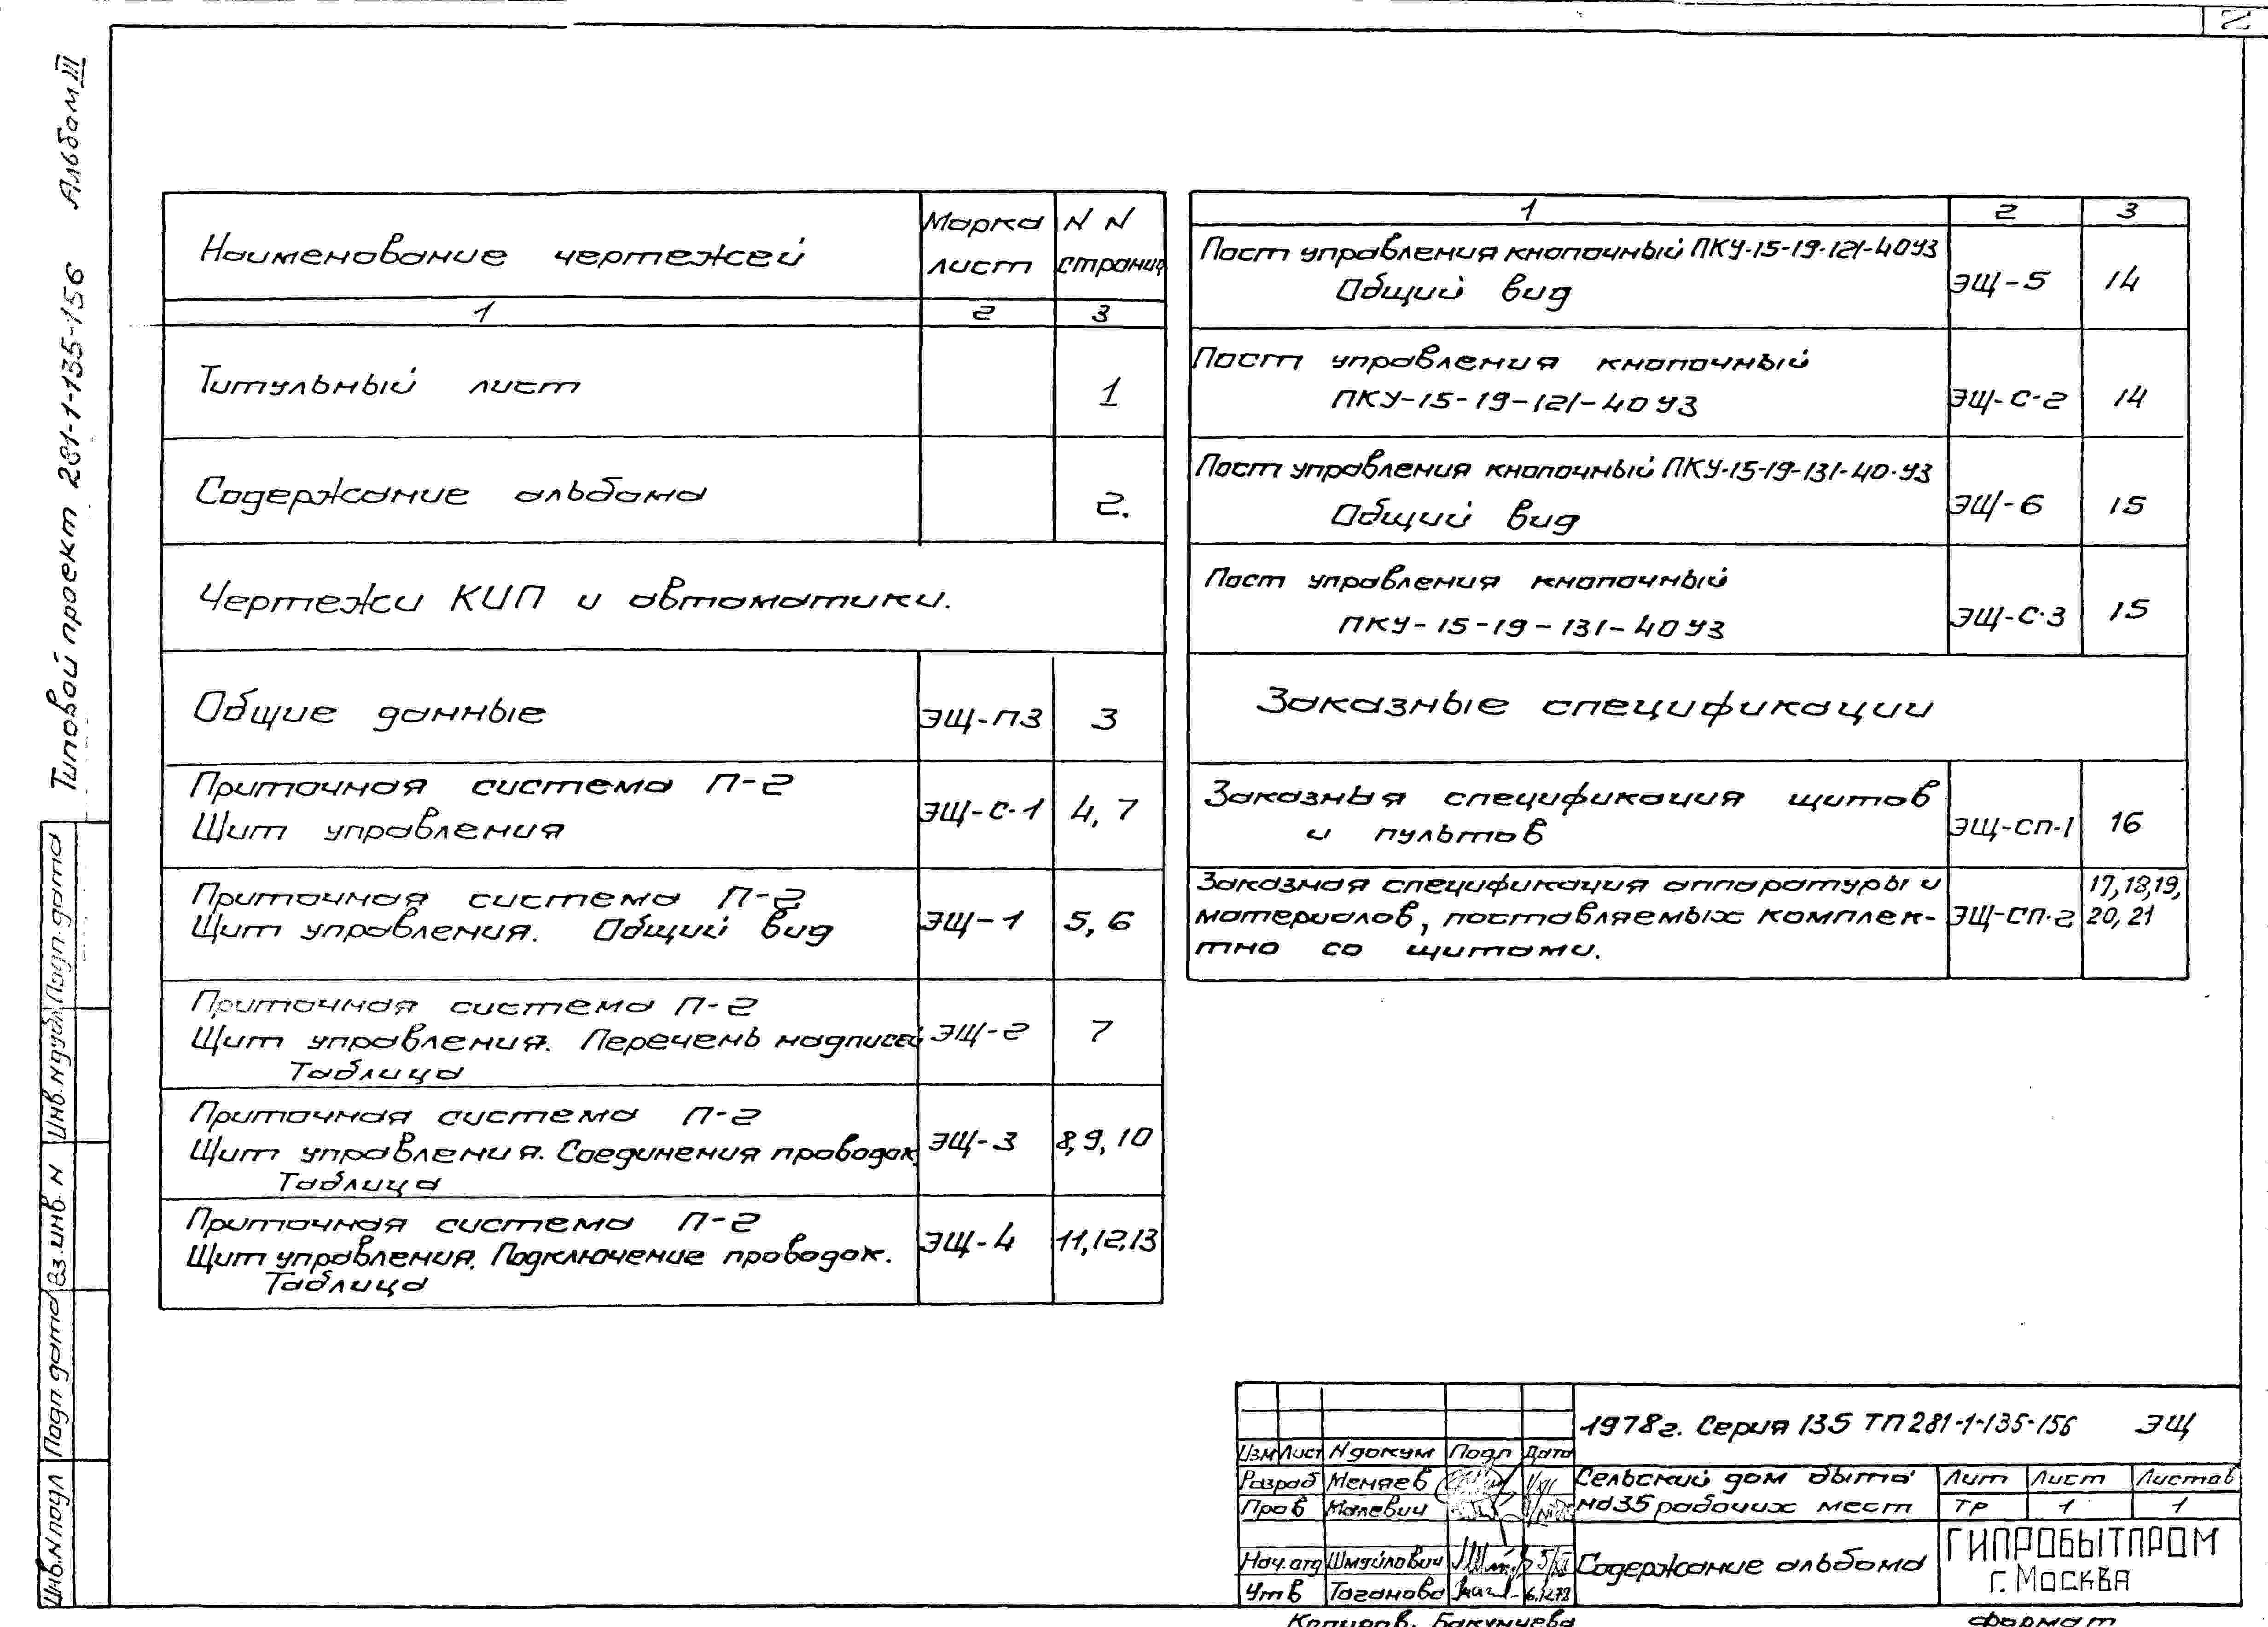 2
Типовой проект 281-1-135-156 Альбом III
Наименование чертежей
Марка лист
N N страниц
1 2 3
Титульный лист 1
Содержание альбома 2.
Чертежи КИП и автоматики.
Общие данные ЭЩ-ПЗ 3
Приточная система П-2
Щит управления ЭЩ-С-1 4, 7
Приточная система П-2
Щит управления. Общий вид ЭЩ-1 5, 6
Приточная система П-2
Щит управления. Перечень надписей ЭЩ-2 7
Таблица
Приточная система П-2
Щит управления. Соединения проводок. ЭЩ-3 8, 9, 10
Таблица
Приточная система П-2
Щит управления. Подключение проводок. ЭЩ-4 11, 12, 13
Таблица
1 2 3
Пост управления кнопочный ПКУ-15-19-121-40У3
Общий вид ЭЩ-5 14
Пост управления кнопочный
ПКУ-15-19-121-40У3 ЭЩ-С-2 14
Пост управления кнопочный ПКУ-15-19-131-40-У3
Общий вид ЭЩ-6 15
Пост управления кнопочный
ПКУ-15-19-131-40У3 ЭЩ-С-3 15
Заказные спецификации
Заказныя спецификация щитов
и пультов ЭЩ-СП-1 16
Заказная спецификация аппаратуры и 17, 18, 19,
материалов, поставляемых комплек- ЭЩ-СП-2 20, 21
тно со щитами.
Инв.N подл Подп. дата Вз. инв. N Инв.N дубл Подп. дата
1978г. Серия 135 ТП 281-1-135-156 ЭЩ
Изм Лист N докум Подп Дата
Разраб Меняев
Пров Малевич
Нач. отд Шмуйлович 5/XII
Утв Таганова 6.12.78
Сельский дом быта
на 35 рабочих мест
Лит Лист Листов
ТР 1 1
Содержание альбома
ГИПРОБЫТПРОМ
г. Москва
Копиров. Бакунцева Формат